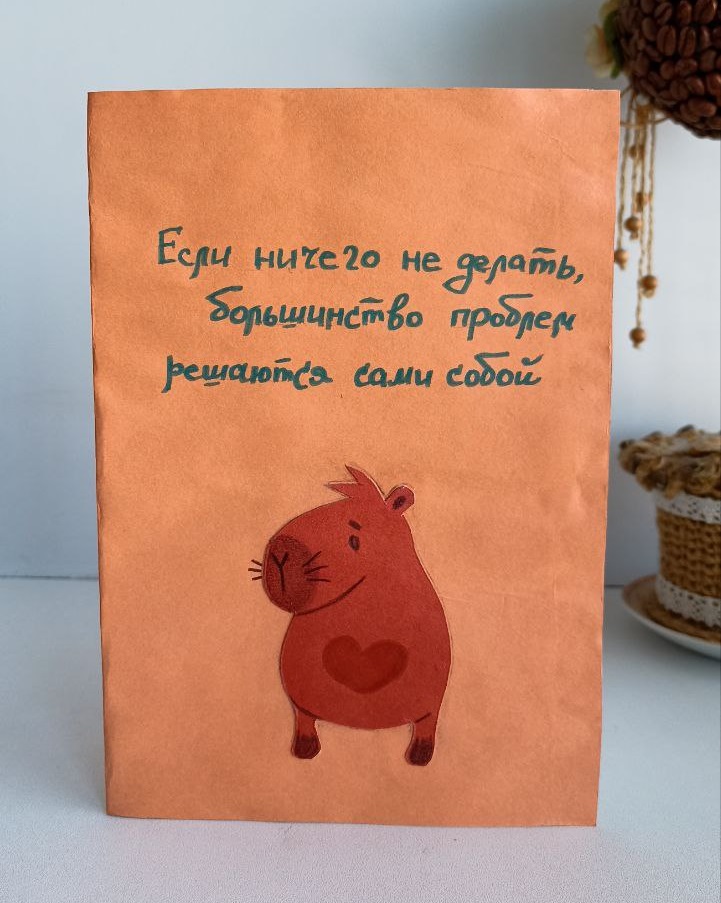 Если ничего не делать,
большинство проблем
решаются сами собой